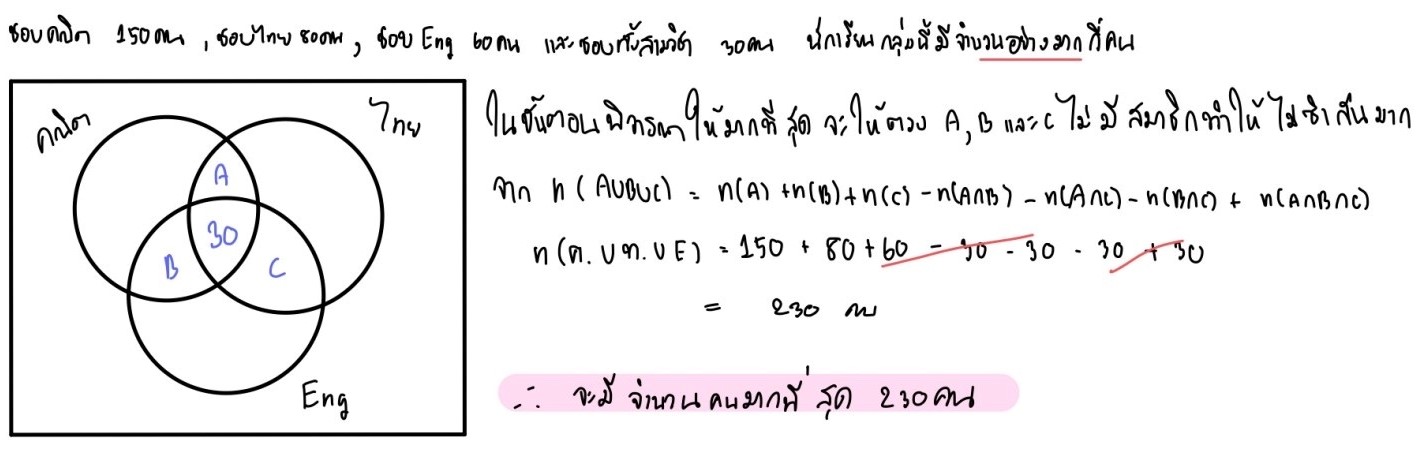 ชอบคณิต 150คน , ชอบไทย 80คน, ชอบ Eng 60คน และชอบทั้งสามวิชา 30คน นักเรียนกลุ่มนี้มีจำนวนอย่างมากกี่คน
คณิต
ไทย
A
30
B
C
Eng
ในขั้นตอนพิจารณาให้มากที่สุด จะให้ตรง A, B และ C ไม่มีสมาชิกทำให้ไม่ซ้ำกันมาก
จาก n(A∪B∪C) = n(A)+n(B)+n(C)-n(A∩B)-n(A∩C)-n(B∩C)+n(A∩B∩C)
n(ค.∪ท.∪E) = 150 + 80 + 60 - 30 - 30 - 30 + 30
= 230 คน
∴ จะมีจำนวนคนมากที่สุด 230คน